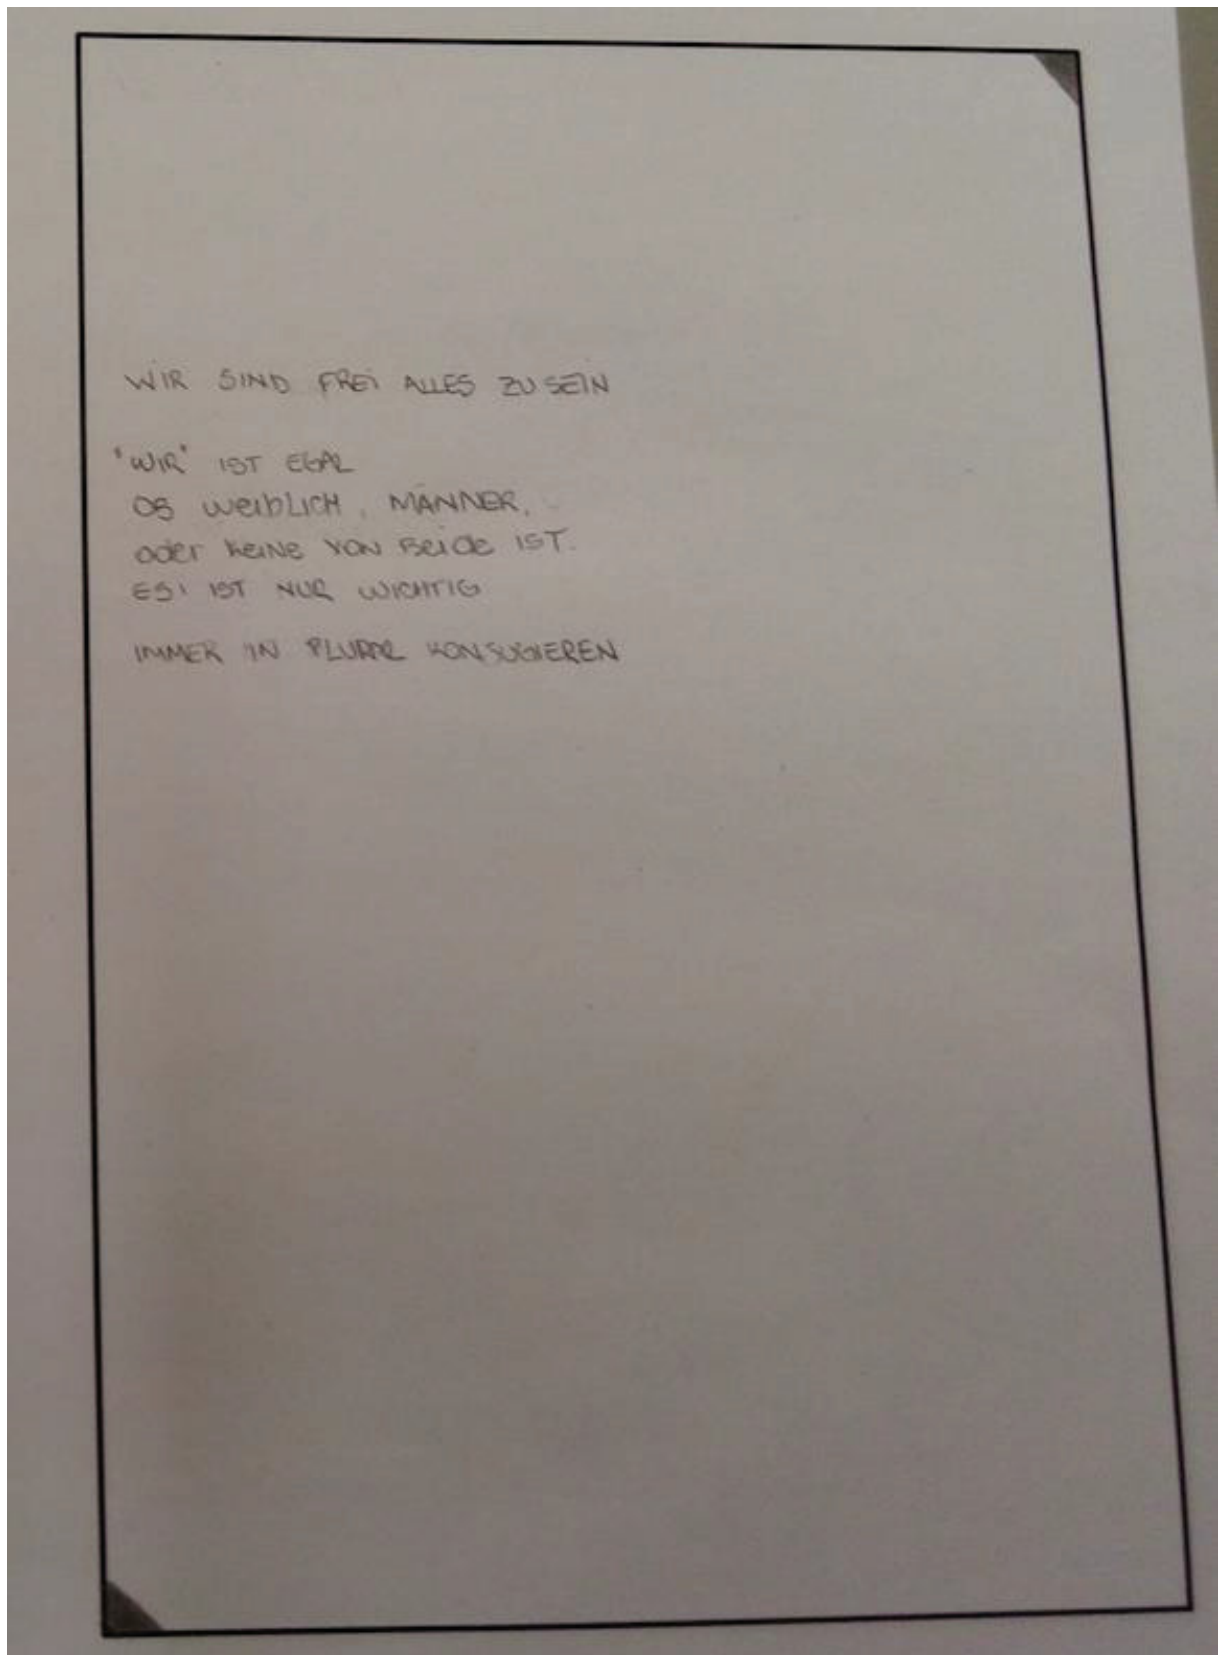 WIR SIND FREI ALLES ZU SEIN
"WIR" IST EGAL
OB weiblicH, MÄNNER,
oder keine von Beide IST.
ES IST NUR WICHTIG
IMMER IN PLURAL KONJUGIEREN